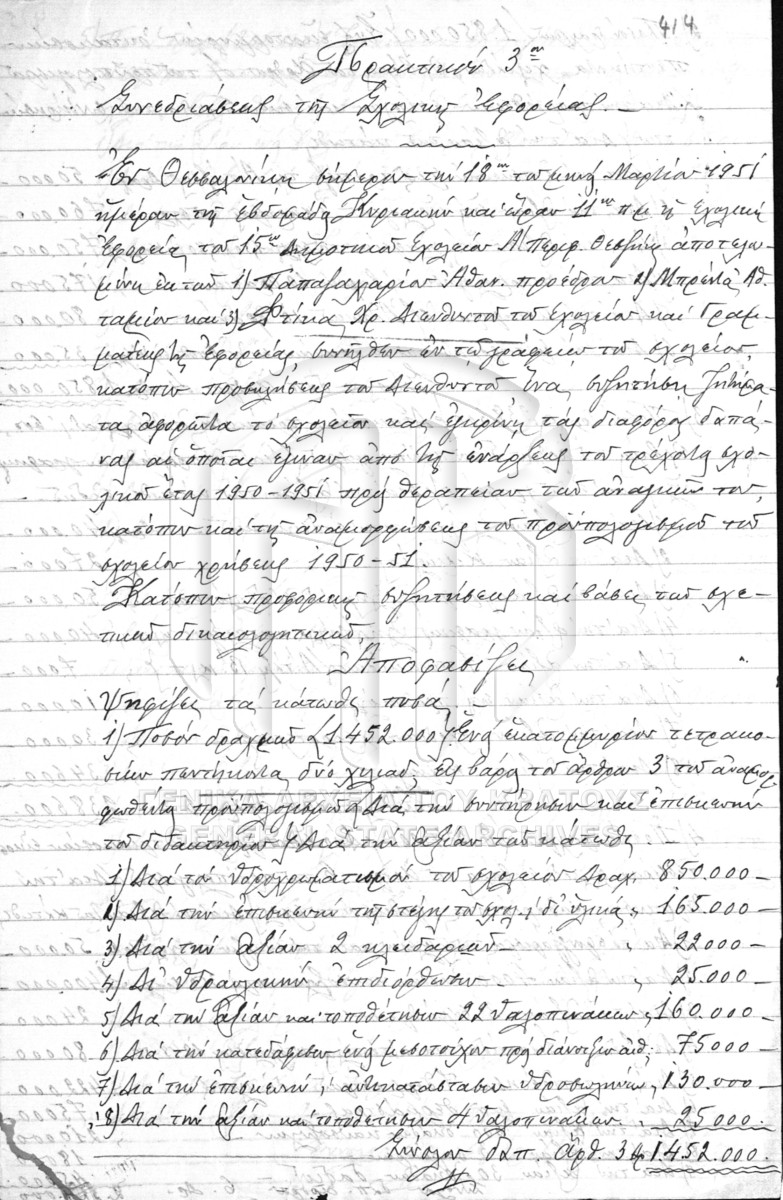 414
Πρακτικόν 3ον
Συνεδριάσεως της Σχολικής Εφορείας. —
Εν Θεσσαλονίκη σήμερον την 18ην του μηνός Μαρτίου 1951
ημέραν της εβδομάδος Κυριακήν και ώραν 11ην π.μ. η Σχολική
Εφορεία του 15ου Δημοτικού Σχολείου Α! Περιφ. Θεσ)νίκης αποτελου-
μένη εκ των 1) Παπαζαχαρίου Αθαν. προέδρου 2) Μπρέντα Αθ.
ταμίου και 3) Φτίκα Χρ. Διευθυντού του σχολείου και Γραμ-
ματέως της Εφορείας, συνήλθεν εν τω γραφείω του σχολείου,
κατόπιν προσκλήσεως του Διευθυντού ίνα συζητήση ζητήμα-
τα αφορώντα το σχολείον και εγκρίνη τας διαφόρους δαπά-
νας αι οποίαι έγιναν από της ενάρξεως του τρέχοντος σχο-
λικού έτους 1950-1951 προς θεραπείαν των αναγκών του,
κατόπιν και της αναμορφώσεως του προϋπολογισμού του
σχολείου χρήσεως 1950-51.
Κατόπιν προφορικής συζητήσεως και βάσει των σχε-
τικών δικαιολογητικών,
Αποφασίζει
Ψηφίζει τα κάτωθι ποσά. —
1) Ποσόν δραχμών (1.452.000) Ενός εκατομμυρίου τετρακο-
σίων πεντήκοντα δύο χιλιάδ. εις βάρος του άρθρου 3 του αναμορ-
φωθέντος προϋπολογισμού (Δια την συντήρησιν και επισκευήν
του διδακτηρίου) Δια την αξίαν των κάτωθι. —
ΓΕΝΙΚΑ ΑΡΧΕΙΑ ΤΟΥ ΚΡΑΤΟΥΣ
GENERAL STATE ARCHIVES
1) Δια τον υδροχρωματισμόν του σχολείου Δραχ. 850.000 —
2) Δια την επισκευήν της στέγης του σχολ. δι' υλικά " 165.000 —
3) Δια την αξίαν 2 κλειδαριών — " 22.000 —
4) Δι' υδραυλικήν επιδιόρθωσιν — " 25.000 —
5) Δια την αξίαν και τοποθέτησιν 22 υαλοπινάκων " 160.000 —
6) Δια την κατεδάφισιν ενός μεσοτοίχου προς διάνοιξιν αιθ. " 75000 —
7) Δια την επισκευήν, αντικατάστασιν υδροσωλήνων " 130.000 —
8) Δια την αξίαν και τοποθέτησιν 4 υαλοπινάκων " 25000.
Σύνολον δαπ. άρθ. 3 δρ 1.452.000.